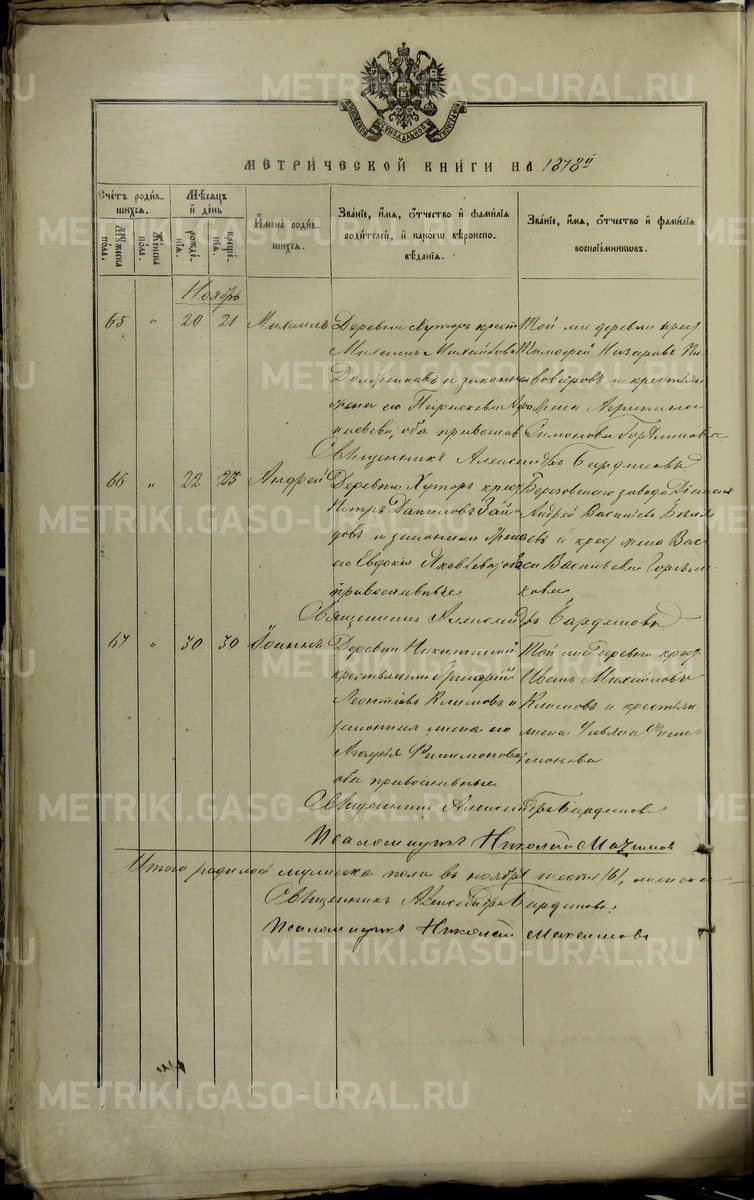 METRIKI.GASO-URAL.RU
МОСКОВСКОЙ СѴНОДАЛЬНОЙ ТИПОГРАФІИ
МЕТРИ́ЧЕСКОЙ КНИГИ НА 1878й
Счетъ роди́вшихся.
Мѣсяцъ и день
Мужеска пола.
Женска пола.
рождéнія.
крещéнія.
И҆мена роди́вшихся.
Зва́ніе, и҆́мя, ѻ҆́тчество и҆ фами́лія роди́телей, и҆ какогѡ вѣроисповѣданія.
Зва́ніе, и҆́мя, ѻ҆́тчество и҆ фами́лія воспріе́мниковъ.
Ноябрь
65 " 20 21 Михаилъ
Деревни Хуторъ крест
Михаилъ Михайловъ
и законная
жена его Параскева
оба православ
Той же деревни крес
Тимофей Назаровъ
и крестьян
жена
Симонова
Священникъ Александръ Бардиновъ
66 " 22 23 Андрей
Деревни Хуторъ крес
Петръ Даниловъ
и законная жена
его Евдокія Яковлева, оба
православные
Березовскаго завода
Андрей Васильевъ
и крес жена Вас
са Васильева
кова
Священникъ Александръ Бардиновъ
67 " 30 30 Іоаннъ
Деревни
крестьянинъ Григорій
Леонтіевъ Климовъ и
законная жена его
Агафья Филимонова,
оба православные
Той же деревни крес
Иванъ Михайловъ
Климовъ и крестьян
жена Ульяна Фили-
монова
Священникъ Александръ Бардиновъ
Псаломщикъ Николай Максимовъ
Итого родилось мужеска пола въ ноябрѣ шесть /6/, женска
Священникъ Александръ Бардиновъ
Псаломщикъ Николай Максимовъ